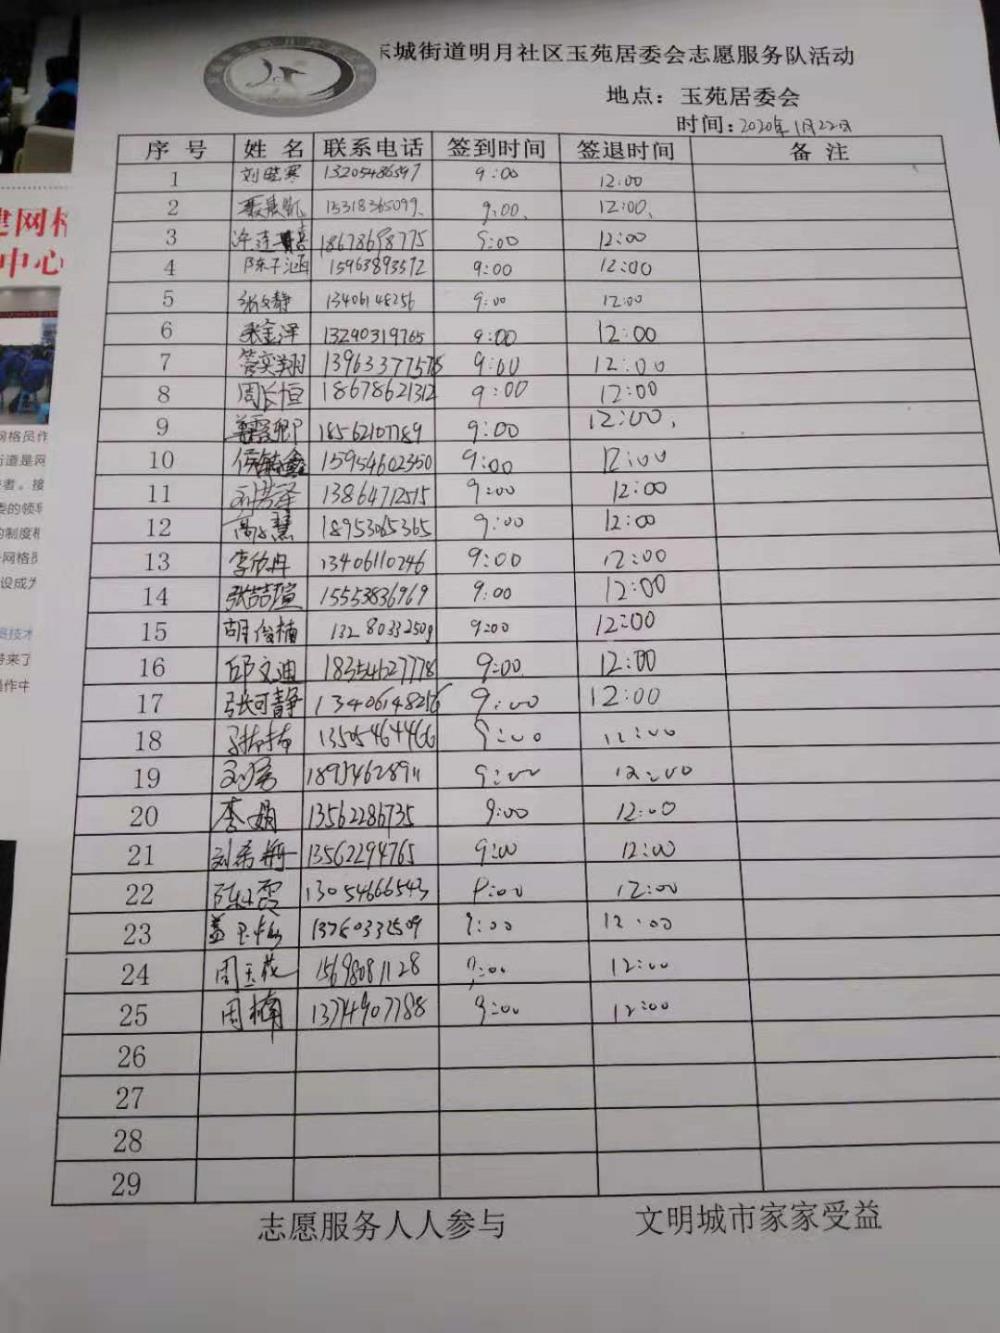 东城街道明月社区玉苑居委会志愿服务队活动
地点：玉苑居委会
时间：2020年1月22日
序号 姓名 联系电话 签到时间 签退时间 备注
1 刘晓寒 13205486597 9:00 12:00
2 15318365099 9:00 12:00
3 18678698775 9:00 12:00
4 陈子涵 15963893572 9:00 12:00
5 张文静 13406148256 9:00 12:00
6 张金泽 13290319765 9:00 12:00
7 管奕翔 9:00 12:00
8 周长恒 18678621312 9:00 12:00
9 18562107789 9:00 12:00
10 15954602350 9:00 12:00
11 刘芳泽 13864712515 9:00 12:00
12 18953065365 9:00 12:00
13 李欣冉 13406110246 9:00 12:00
14 张喆瑄 15553836969 9:00 12:00
15 胡俊楠 13280332509 9:00 12:00
16 邱文迪 18354627778 9:00 12:00
17 张可静 13406148256 9:00 12:00
18 13505464466 9:00 12:00
19 9:00 12:00
20 李娟 13562286735 9:00 12:00
21 13562294765 9:00 12:00
22 13054666543 9:00 12:00
23 9:00 12:00
24 周玉花 15698081128 9:00 12:00
25 周楠 9:00 12:00
26
27
28
29
志愿服务人人参与 文明城市家家受益
建网格
中心
网格员作
街道是网
者。接
委的领导
的制度机
网格员
设成为
技术
带来了
操作中